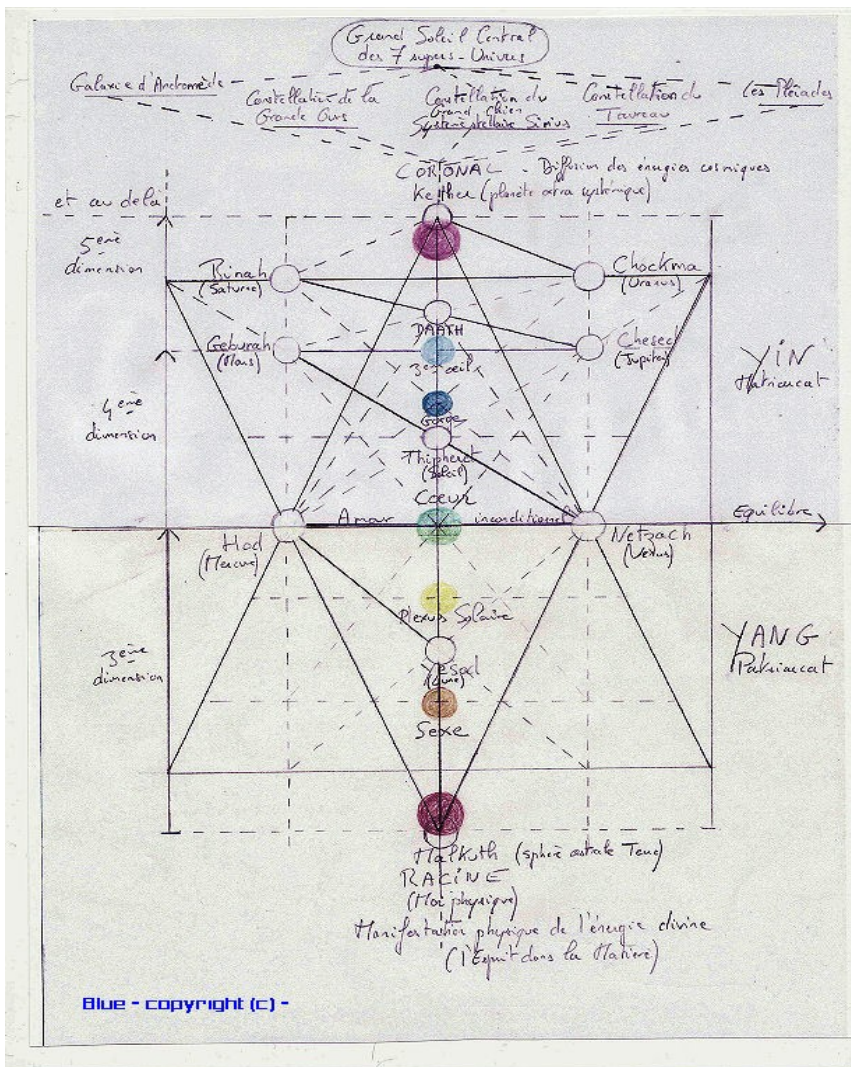 Grand Soleil Central
des 7 supers-Univers
Galaxie d'Andromède
Constellation de la
Grande Ours
Constellation du
Grand Chien
Système stellaire Sirius
Constellation du
Taureau
Les Pléiades
CORONAL - Diffusion des énergies cosmiques
Kether (planète extra systémique)
et au delà
5ème
dimension
Binah
(Saturne)
Chockma
(Uranus)
DAATH
Geburah
(Mars)
Chesed
(Jupiter)
3ème oeil
YIN
Matriarcat
4ème
dimension
Gorge
Thipheret
(Soleil)
Coeur
Amour inconditionel
Equilibre
Hod
(Mercure)
Netzach
(Vénus)
Plexus Solaire
3ème
dimension
Yesod
(Lune)
YANG
Patriarcat
Sexe
Malkuth (sphère astrale Terre)
RACINE
(Moi physique)
Manifestation physique de l'énergie divine
(l'Esprit dans la Matière)
Blue - copyright (c) -